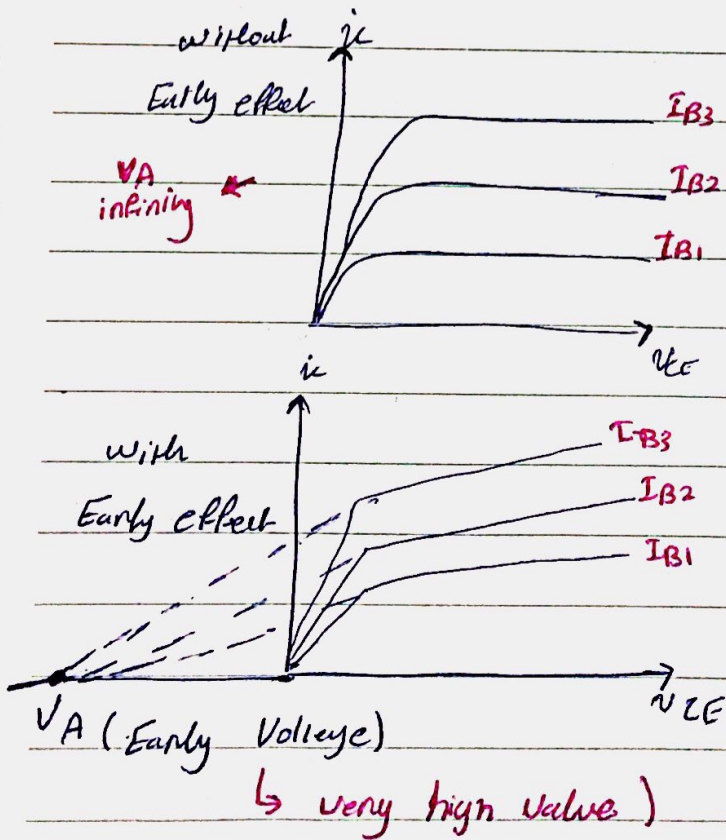 without
ic
Early effect
IB3
VA
infining
IB2
IB1
VCE
ic
with
Early effect
IB3
IB2
IB1
VCE
VA (Early Volteye)
↳ very high value)